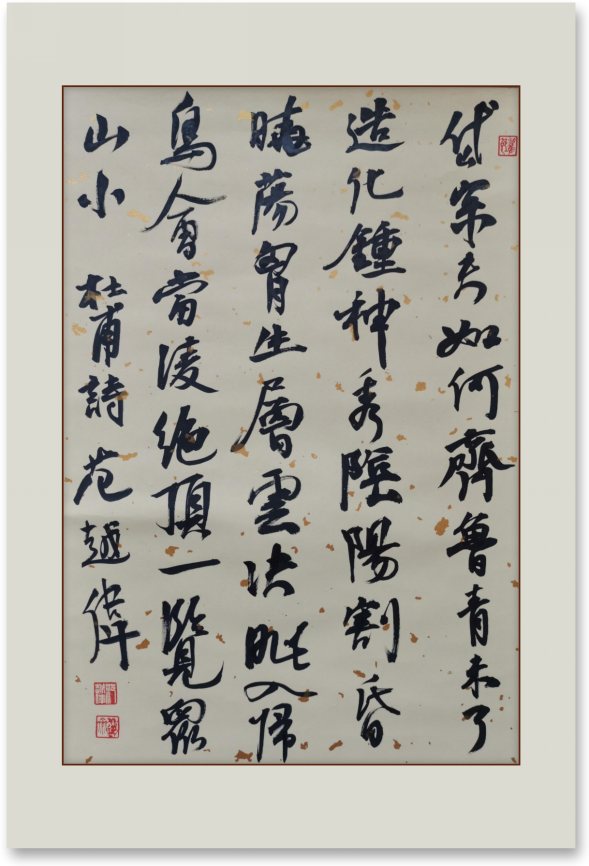 岱宗夫如何齊魯青未了
造化鍾神秀陰陽割昏
曉蕩胷生層雲决眦入歸
鳥會當淩絶頂一覽眾
山小 杜甫詩 范越偉